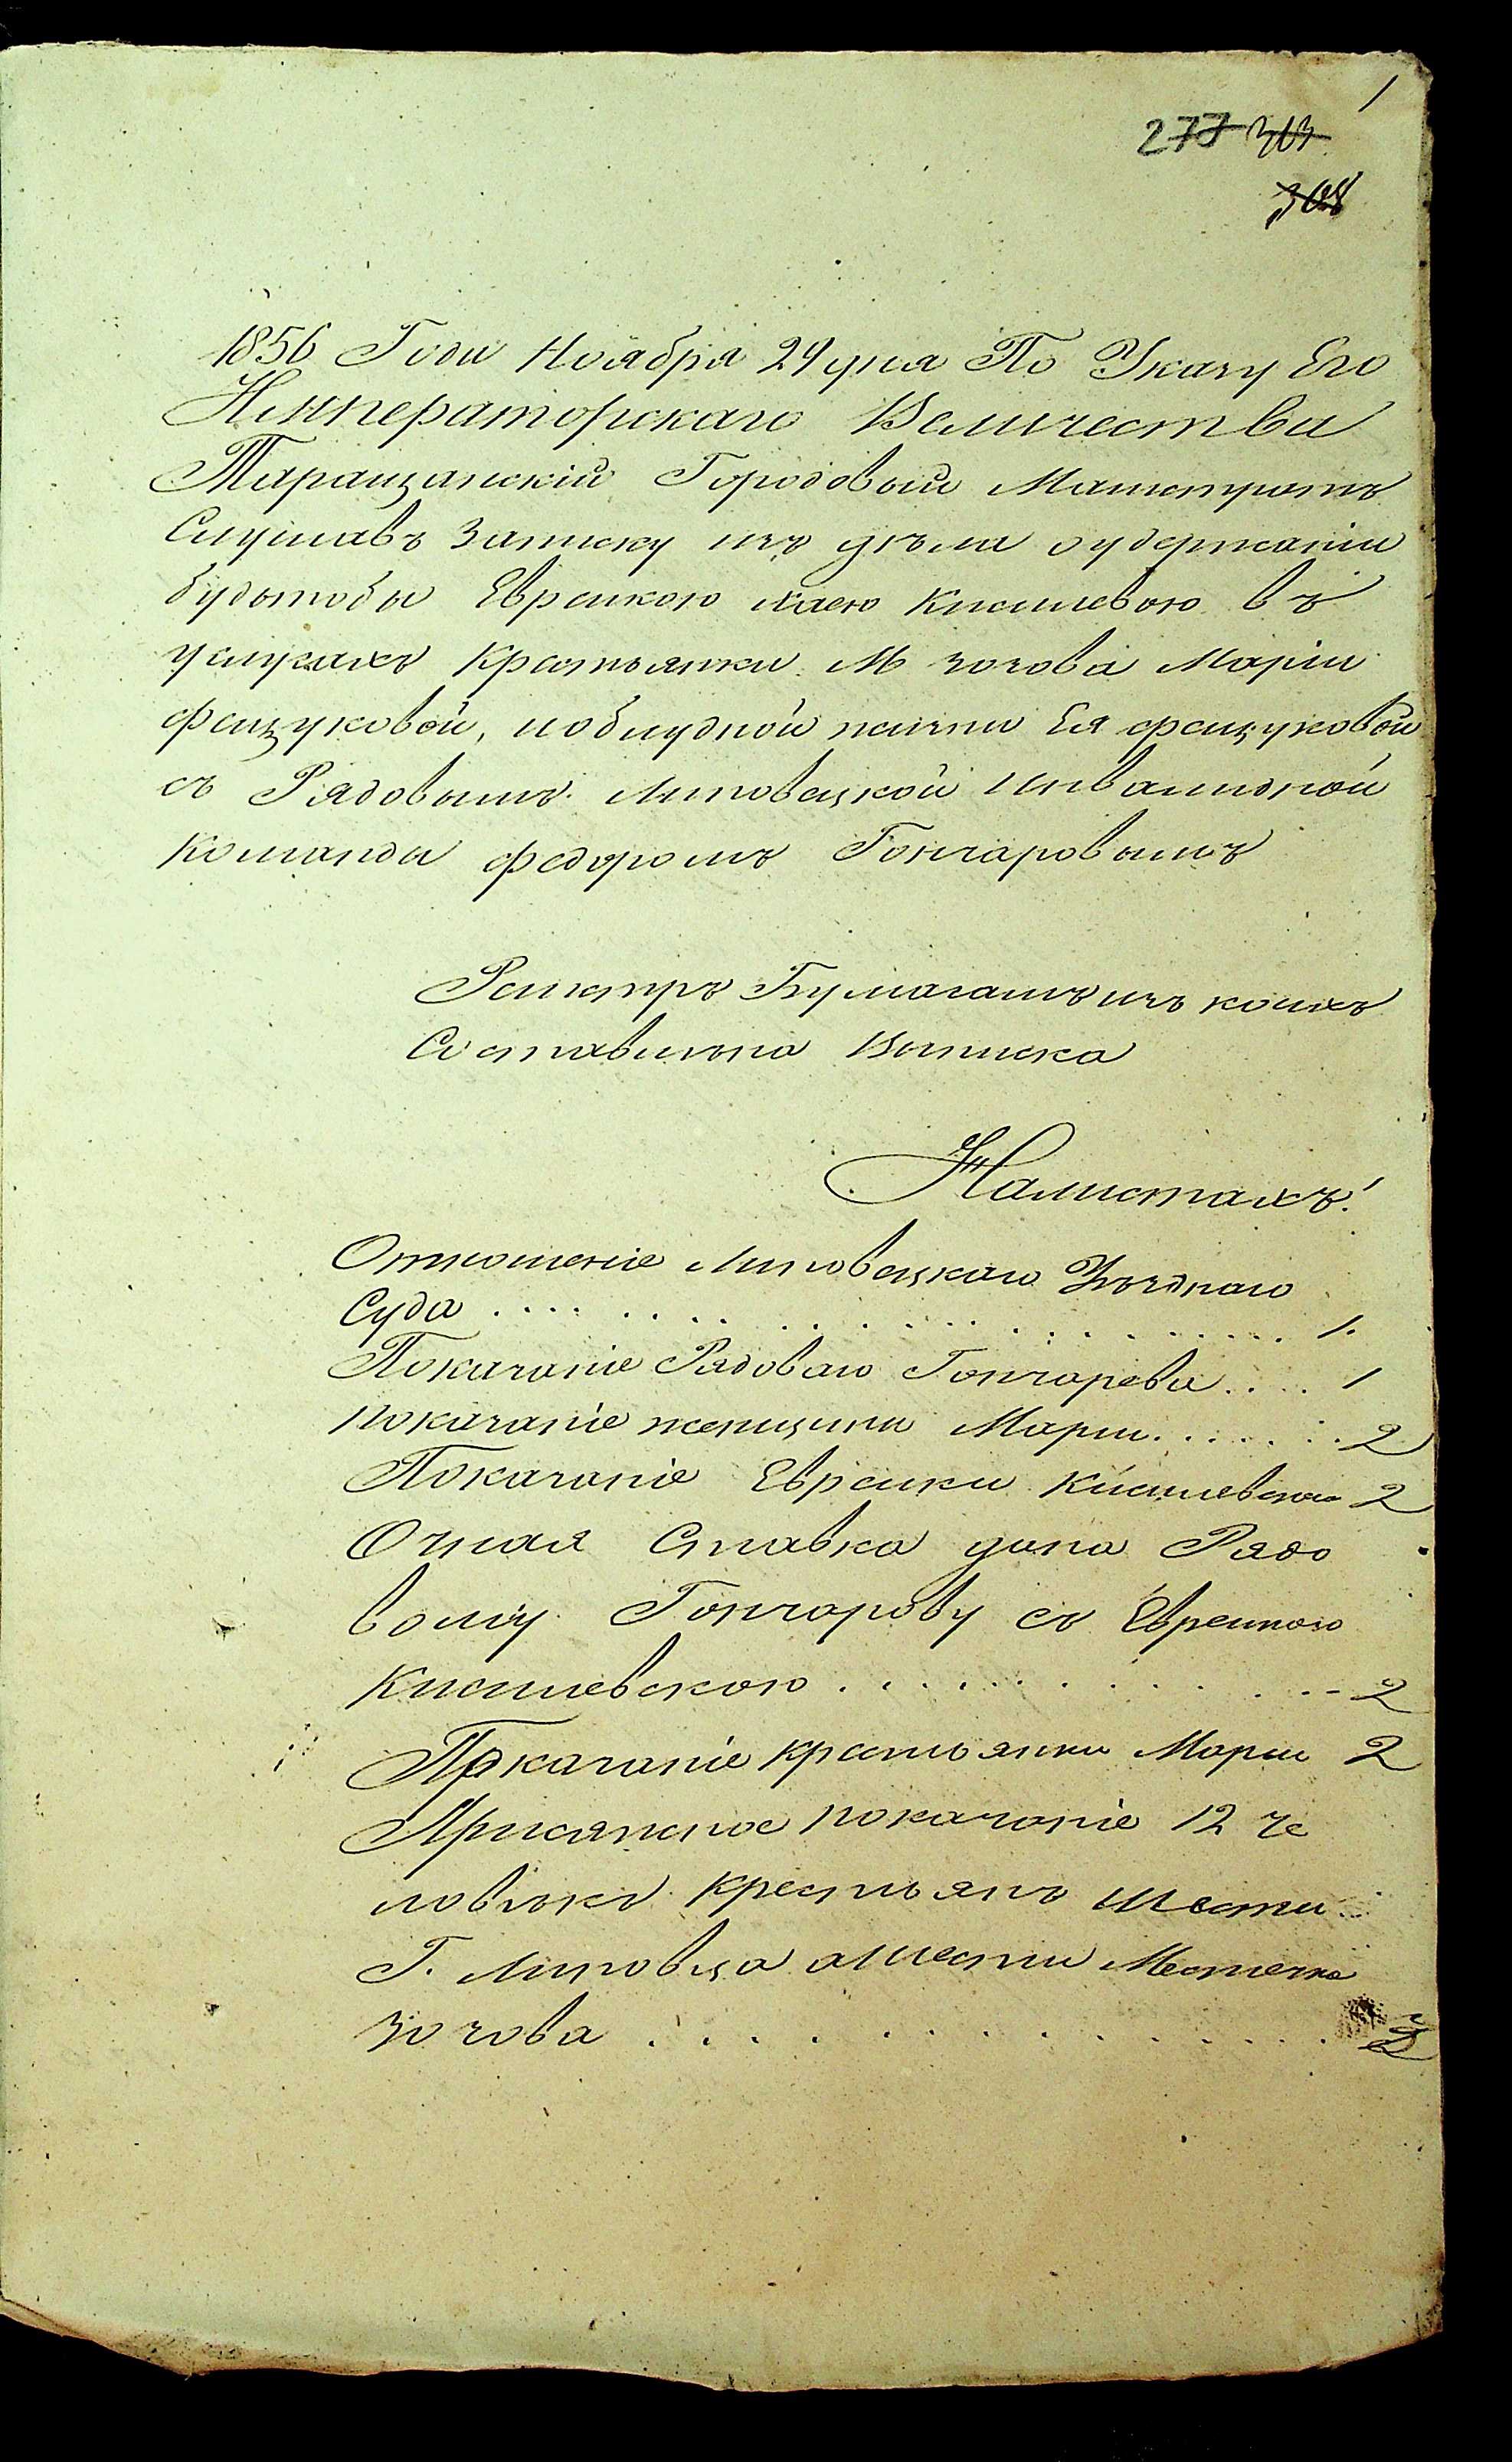 1
277 303
308
1856 Года Ноября 29 дня По Указу Его
Императорскаго Величества
Таращанскій Городовый Магистратъ
Слушавъ Записку изъ дѣла о удержаніи
будьтобы Еврейкою Хаею Кисилевою въ
услугахъ Крестьянки М Зозова Маріи
Фещуковой, и облудной жизни Ея Фещуковой
съ Рядовымъ Липовецкой Инвалидной
Команды Федоромъ Гончаровымъ
Реистръ Бумагамъ изъ коихъ
Составлѣна Выписка
На листахъ!
Отношеніе Липовецкаго Уѣзднаго
Суда . . . . . . . . . . . . . . . . 1.
Показаніе Рядоваго Гончарева . . . . 1
показаніе женщины Маріи . . . . . . 2
Показаніе Еврейки Кисилевской 2
Очная Ставка дана Рядо
вому Гончарову съ Еврейкою
Кисилевскою . . . . . . . . . . 2
Показаніе крестьянки Маріи 2
Присяжное показаніе 12 че
ловѣкъ Крестьянъ шести
Г. Липовца а шести Местечка
Зозова . . . . . . . . . . . . 2